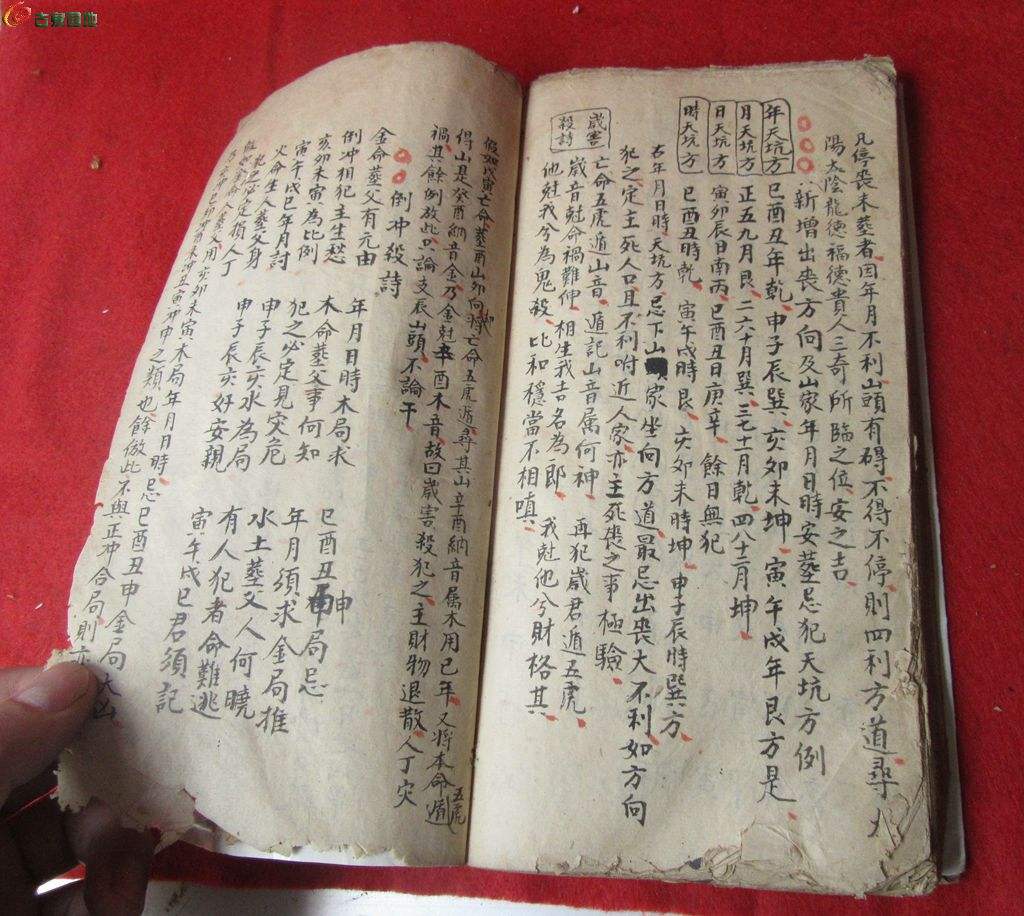 古泉園地
凡停喪未葬者因年月不利山頭有碍不得不停則四利方道尋
陽太陰龍德福德貴人三奇所臨之位安之吉
新增出喪方向及山家年月日時安葬忌犯天坑方例
年天坑方 巳酉丑年乾 申子辰巽 亥卯未坤 寅午戌年艮方是
月天坑方 正五九月艮 二六十月巽 三七十一月乾 四八十二月坤
日天坑方 寅卯辰日南丙 巳酉丑日庚辛 餘日無犯
時天坑方 巳酉丑時乾 寅午戌時艮 亥卯未時坤 申子辰時巽方
右年月日時天坑方忌下山家坐向方道最忌出喪大不利如方向
犯之定主死人口且不利附近人家亦主死喪之事極驗
歲害殺詩 亡命五虎遁山音 遁記山音属何神 再犯歲君遁五虎
歲音尅命禍難伸 相生我吉名為郎 我尅他兮財格其
他尅我兮為鬼殺 比和穩當不相嗔
假如戊寅亡命葬酉山卯向將亡命五虎遁尋其山辛酉納音属木用巳年又將本命五虎遁
得山是癸酉納音金乃金尅辛酉木音故曰歲害殺犯之主財物退散人丁灾
禍其餘例放此只論支辰山頭不論干
倒冲殺詩
金命葬父有元由 年月日時木局求 巳酉丑申局忌
倒冲相犯主生愁 木命葬父事何知 年月須求金局推
亥卯未寅為比例 犯之必定見灾危 水土葬父人何曉
寅午戌巳年月討 申子辰亥水為局 有人犯者命難逃
火命生人葬父身 申子辰亥好安親 寅午戌巳君須記
犯之必定損人丁
亥卯未寅木局年月日時忌巳酉丑申金局大凶
冲丑寅冲申之類也餘倣此不與正冲合局則亦